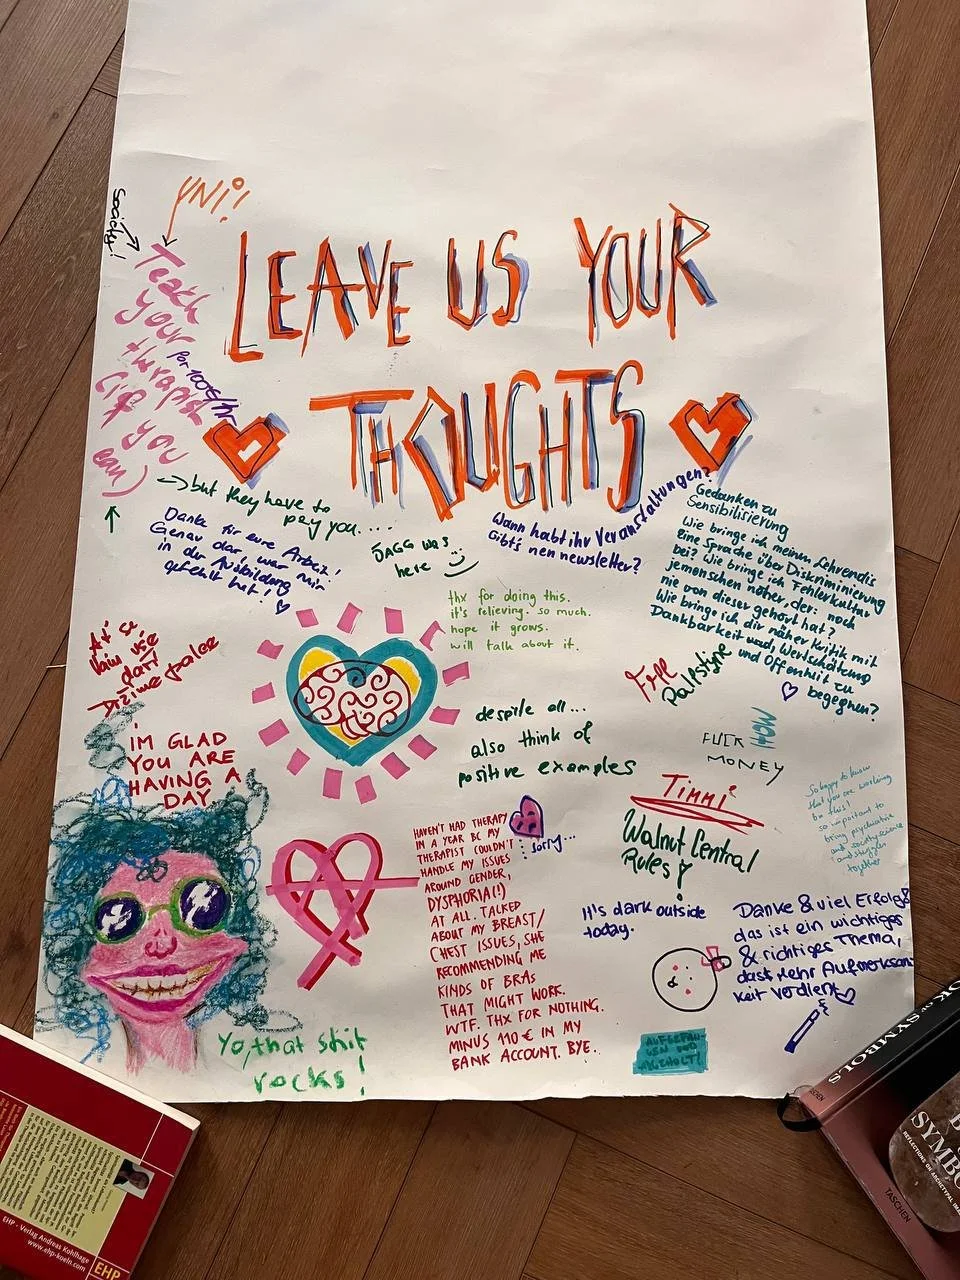 UNi!
society!
LEAVE US YOUR
THOUGHTS
Teach
your
therapist
(if you
can)
for 100€/hr
but they have to
pay you....
Danke für eure Arbeit!
Genau das war mir
in der Ausbildung
gefehlt hat!
JAGG was
here
Wann habt ihr Veranstaltungen?
Gibt's nen newsletter?
Gedanken zu
Sensibilisierung
Wie bringe ich meinen Lehrendis
eine Sprache über Diskriminierung
bei? Wie bringe ich Fehlerkultur
jemenschen näher, der: noch
nie von dieser gehört hat?
Wie bringe ich dir näher Kritik mit
Dankbarkeit und Wertschätzung
und Offenheit zu
begegnen?
thx for doing this.
it's relieving. so much.
hope it grows.
will talk about it.
Free
Palestyne
despite all...
also think of
positive examples
FUCK
MONEY
NOW
IM GLAD
YOU ARE
HAVING A
DAY
Timmi
Walnut Central
Rules!
So happy to know
that you are working
on this!
so important to
bring psychiatrie
and society
and struggles
together
HAVEN'T HAD THERAPY
IN A YEAR BC MY
THERAPIST COULDN'T
HANDLE MY ISSUES
AROUND GENDER,
DYSPHORIA(!)
AT ALL. TALKED
ABOUT MY BREAST/
CHEST ISSUES, SHE
RECOMMENDING ME
KINDS OF BRAS
THAT MIGHT WORK.
WTF. THX FOR NOTHING.
MINUS 110 € IN MY
BANK ACCOUNT. BYE..
sorry...
It's dark outside
today.
Danke & viel Erfolg!
das ist ein wichtiges
& richtiges Thema,
dast Mehr Aufmerksam
keit verdient
Yo, that shit
rocks!
AUFGEFAN-
GEN UND
ABGEHOLT!
EHP - Verlag Andreas Kohlhage
www.ehp-koeln.com
EHP
OK of SYMBOLS
TASCHEN
SYMBO
REFLECTIONS ON ARCHETYPAL IMA
TASCHEN